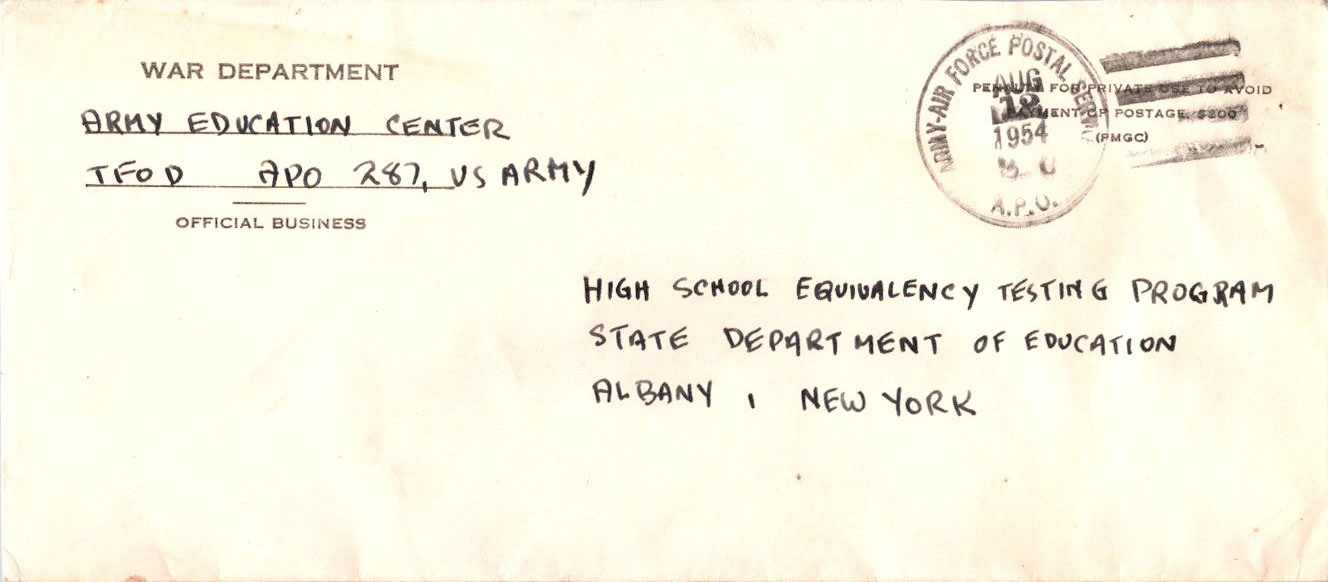 WAR DEPARTMENT
ARMY EDUCATION CENTER
TFOD APO 287, US ARMY
OFFICIAL BUSINESS
ARMY-AIR FORCE POSTAL SERV
AUG
12
1954
A.P.O.
PENALTY FOR PRIVATE USE TO AVOID
PAYMENT OF POSTAGE, $300
(PMGC)
HIGH SCHOOL EQUIVALENCY TESTING PROGRAM
STATE DEPARTMENT OF EDUCATION
ALBANY, NEW YORK